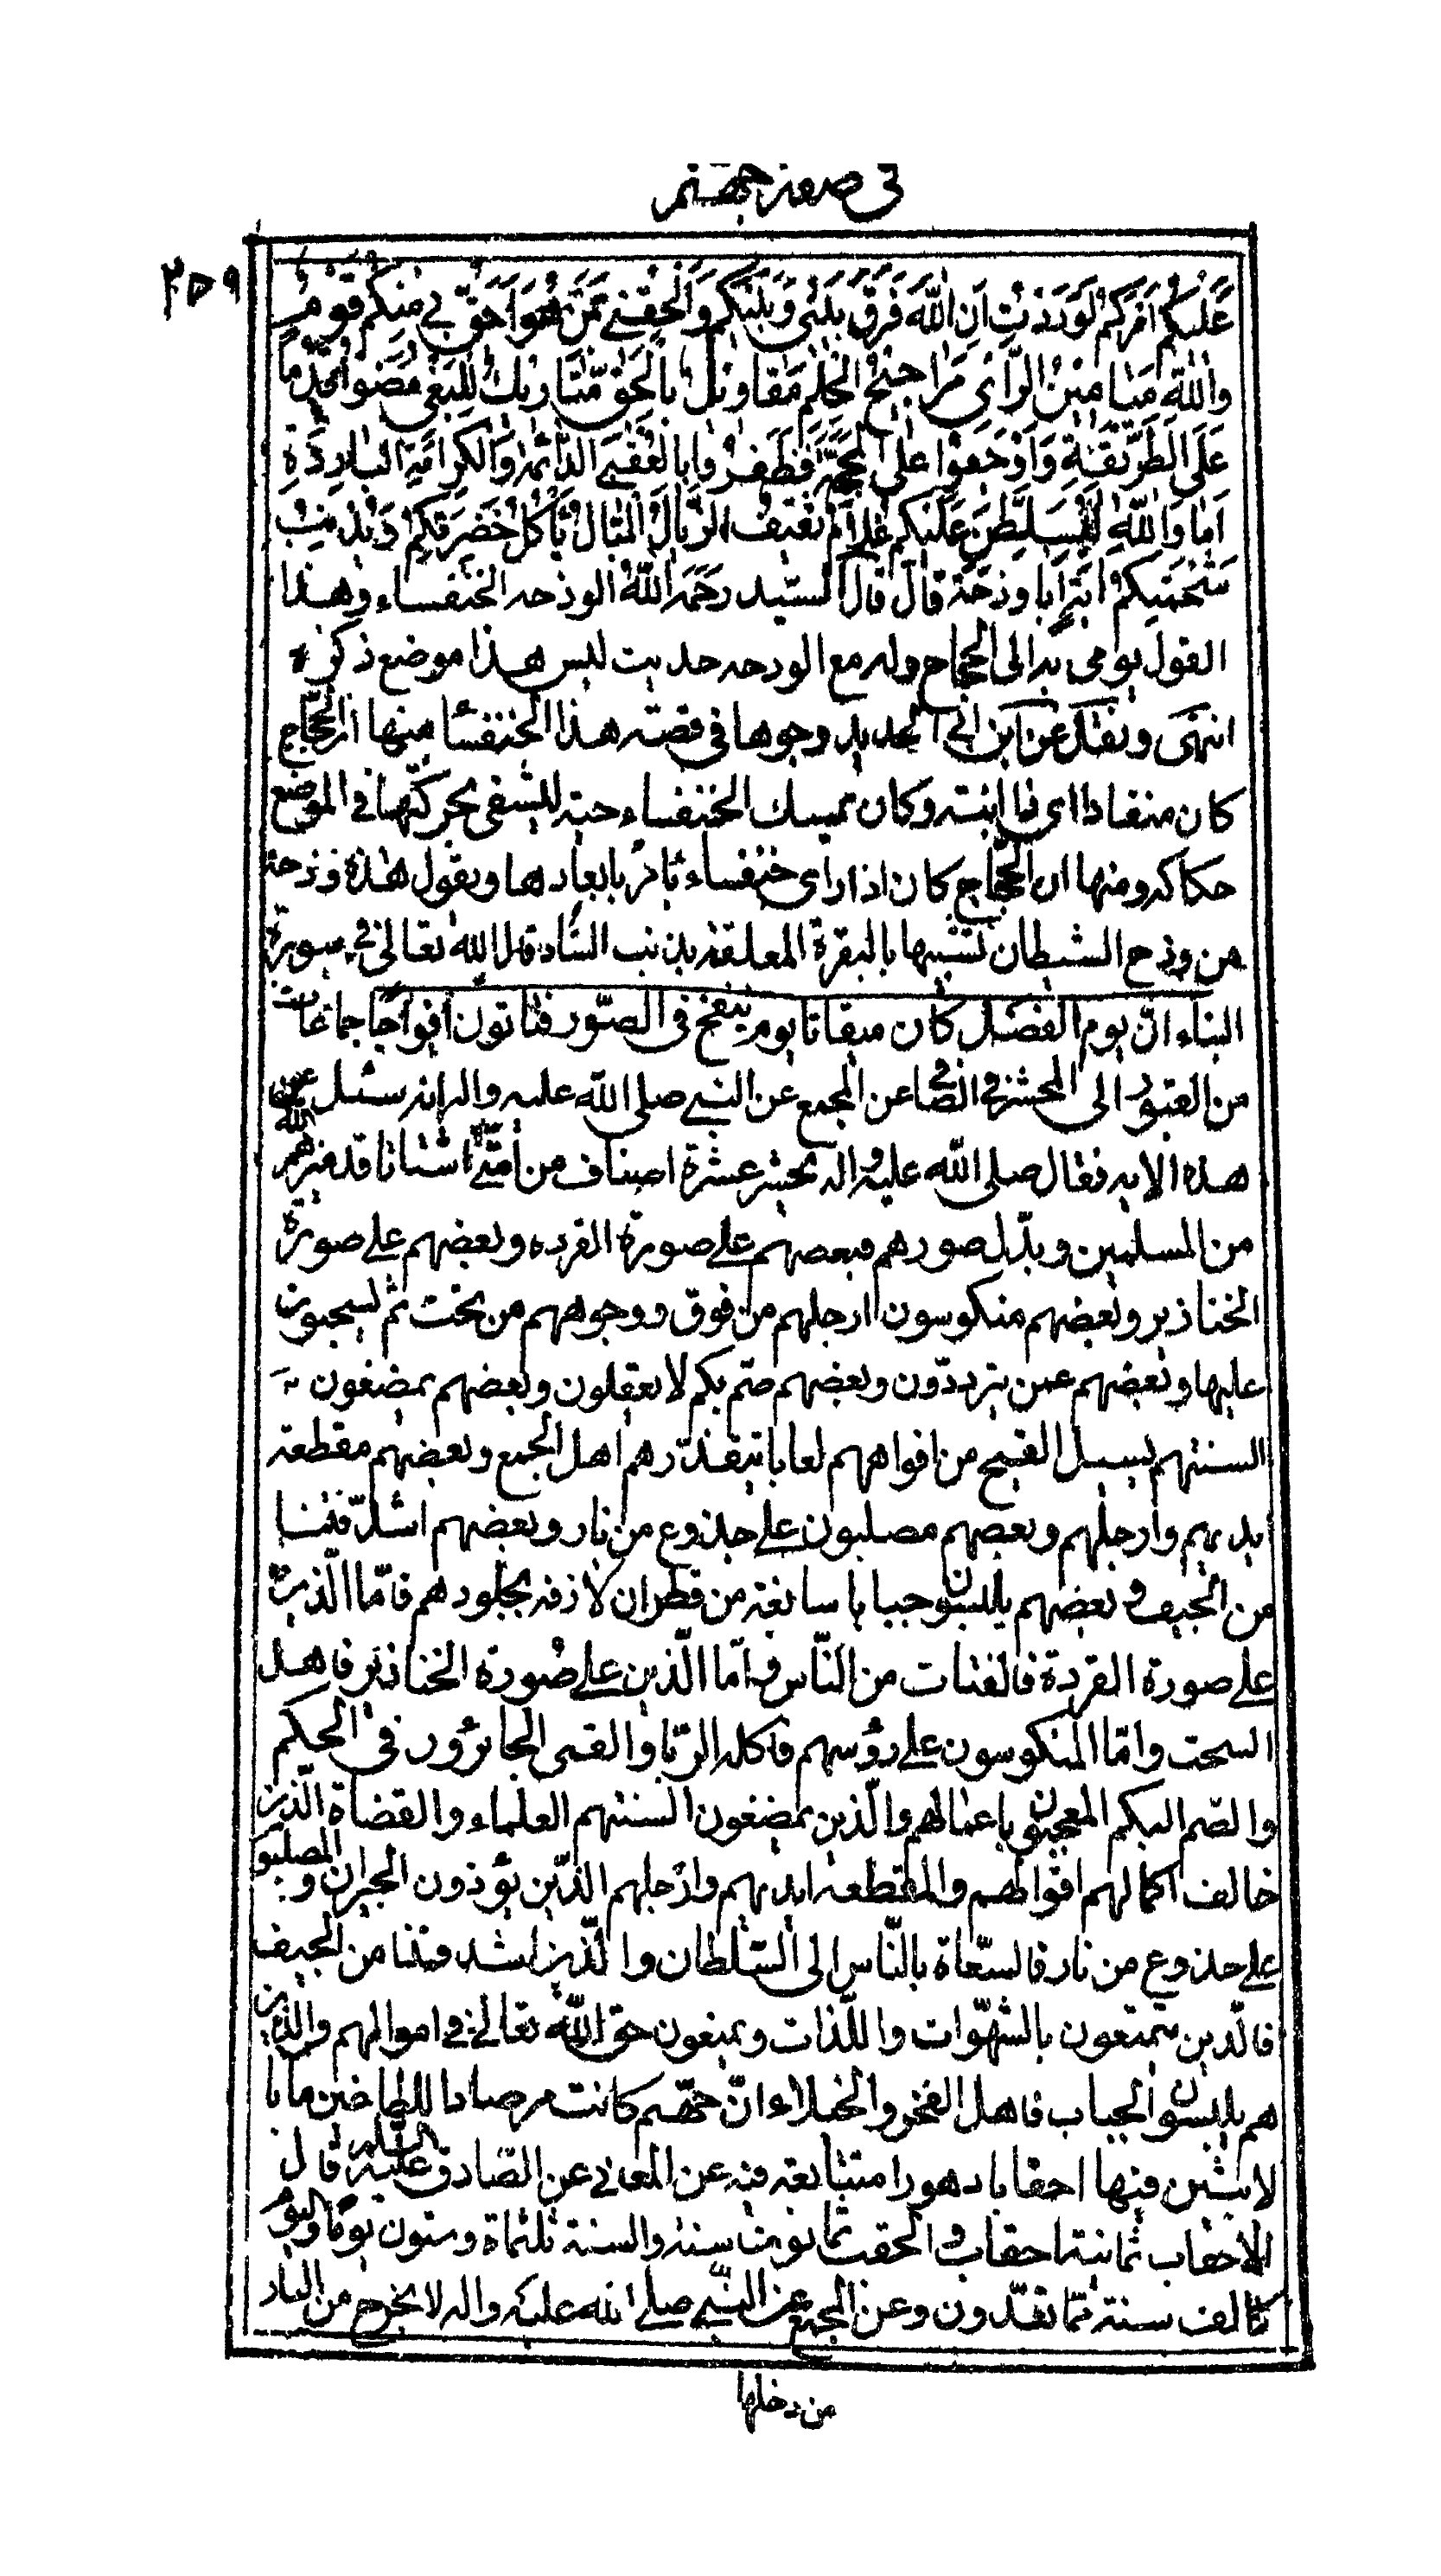 فى صفة جهنم
٣٥٩
عَلَيكُم اَمْرُكُم لَوَدِدْتُ اَنّ اللهَ فَرَّقَ بَيْنى وَبَيْنَكُم وَاَلْحَقَنى بِمَنْ هُوَ اَحَقُّ بى مِنكُم قَومٌ
وَاللهِ مَيامينُ الرّأىِ مَراجيحُ الحِلمِ مَقاويلُ بِالحَقِّ مَتاريكُ لِلبَغىِ مَضَوا قُدُماً
عَلَى الطَّريقَةِ وَاَوْجَفُوا عَلَى المَحَجَّةِ فَظَفِرُوا بِالعُقْبى الدّائمَةِ وَالكَرامَةِ البارِدَةِ
اَما وَاللهِ لَيُسَلَّطَنَّ عَلَيْكُم غُلامُ ثَقيفٍ الذَّيّالُ المَيّالُ يَأكُلُ خَضِرَتَكُم وَيُذيبُ
شَحْمَتَكُمْ ايهٍ اَبا وَذَحَةَ قال قال السّيد رَحِمَهُ اللهُ الوذحه الخنفساء وهذا
القول يومى به الى الحجاج وله مع الوذحه حديث ليس هذا موضع ذكره
انتهى ونقل عن ابن ابى الحديد وجوها فى قصته هذا الخنفسا منها ان الحجّاج
كان وكان يمسك الخنفساء حيّه ليشفى بحركتها فى الموضع
حكاكه ومنها ان الحجّاج كان اذا راى خنفساء يأمر بابعادها ويقول هذه وذحة
من وذح الشيطان تشبيها بالبقرة المعلقه بذنب الشاة قال الله تعالى فى سورة
النباء انّ يوم الفصل كان ميقاتا يوم ينفخ فى الصّور فتأتون افواجا جماعات
من القبور الى المحشر فى الصافى عن المجمع عن النبى صلى الله عليه واله انه سئل عن
هذه الايه فقال صلى الله عليه واله يحشر عشرة اصناف من امّتى اشتاتا قد ميزهم الله
من المسلمين وبدّل صورهم فبعضهم على صورة القرده وبعضهم على صورة
الخنازير وبعضهم منكوسون ارجلهم من فوق ووجوههم من تحت ثم يسحبون
عليها وبعضهم عمى يتردّدون وبعضهم صمّ بكم لا يعقلون وبعضهم يمضغون
السنتهم يسيل القيح من افواههم لعابا يتقذّرهم اهل الجمع وبعضهم مقطعة
ايديهم وارجلهم وبعضهم مصلبون على جذوع من نار وبعضهم اشدّ نتنا
من الجيف وبعضهم يلبسون جبابا سابغة من قطران لازقه بجلودهم فامّا الّذين
على صورة القردة فالقتات من النّاس وامّا الّذين على صورة الخنازير فاهل
السحت وامّا المنكوسون على رؤسهم فاكله الرّبا والعمى الجائرون فى الحكم
والصّم البكم المعجبون باعمالهم والّذين يمضغون السنتهم العلماء والقضاة الّذين
خالف اعمالهم اقوالهم والمقطعه ايديهم وارجلهم الذّين يؤذون الجيران والمصلبون
على جذوع من نار فالسّعاة بالنّاس الى السّلطان والّذين اشد نتنا من الجيف
فالّذين يتمتعون بالشّهوات واللّذات ويمنعون حق الله تعالى فى اموالهم والّذين
هم يلبسون الجباب فاهل الفخر والخيلاء انّ جهنّم كانت مرصادا للطاغين مابا
لابثين فيها احقابا دهورا متتابعه فيه عن المعانى عن الصّادق عليه السلام قال
الاحقاب ثمانية احقاب والحقب ثمانون سنه والسنة ثلثماة وستون يوما واليوم
كالف سنة ممّا تعدّون وعن المجمع عن النّبى صلى الله عليه واله لا يخرج من النار
من دخلها